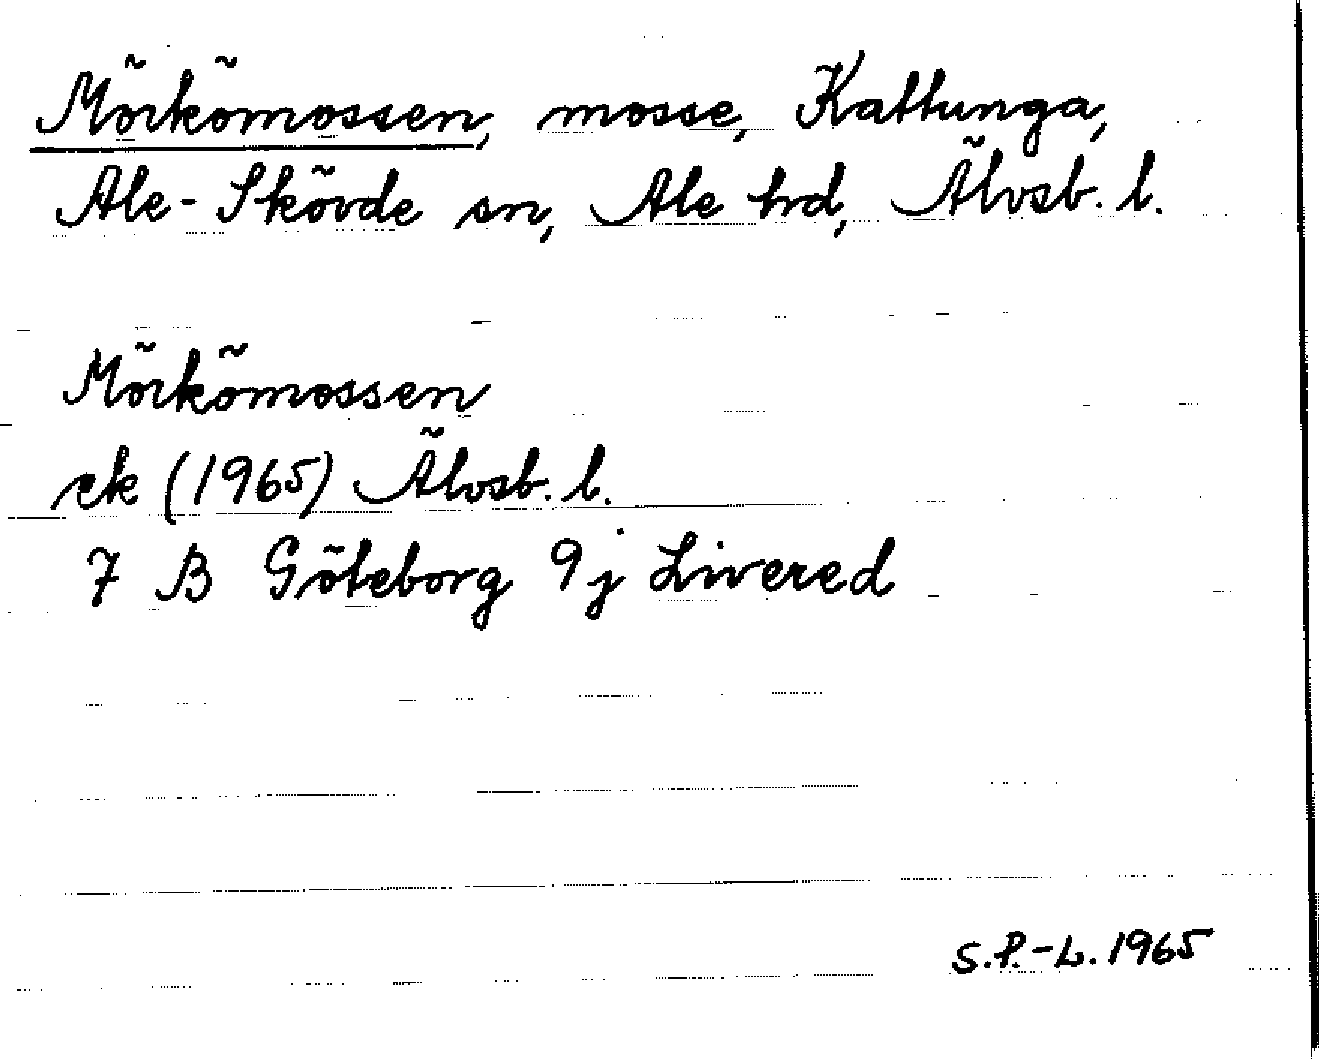 Mörkömossen, mosse, Kattunga,
Ale-Skövde sn, Ale hd, Älvsb. l.
Mörkömossen
ek (1965) Älvsb. l.
7 B Göteborg 9j Livered
S.P.-L. 1965